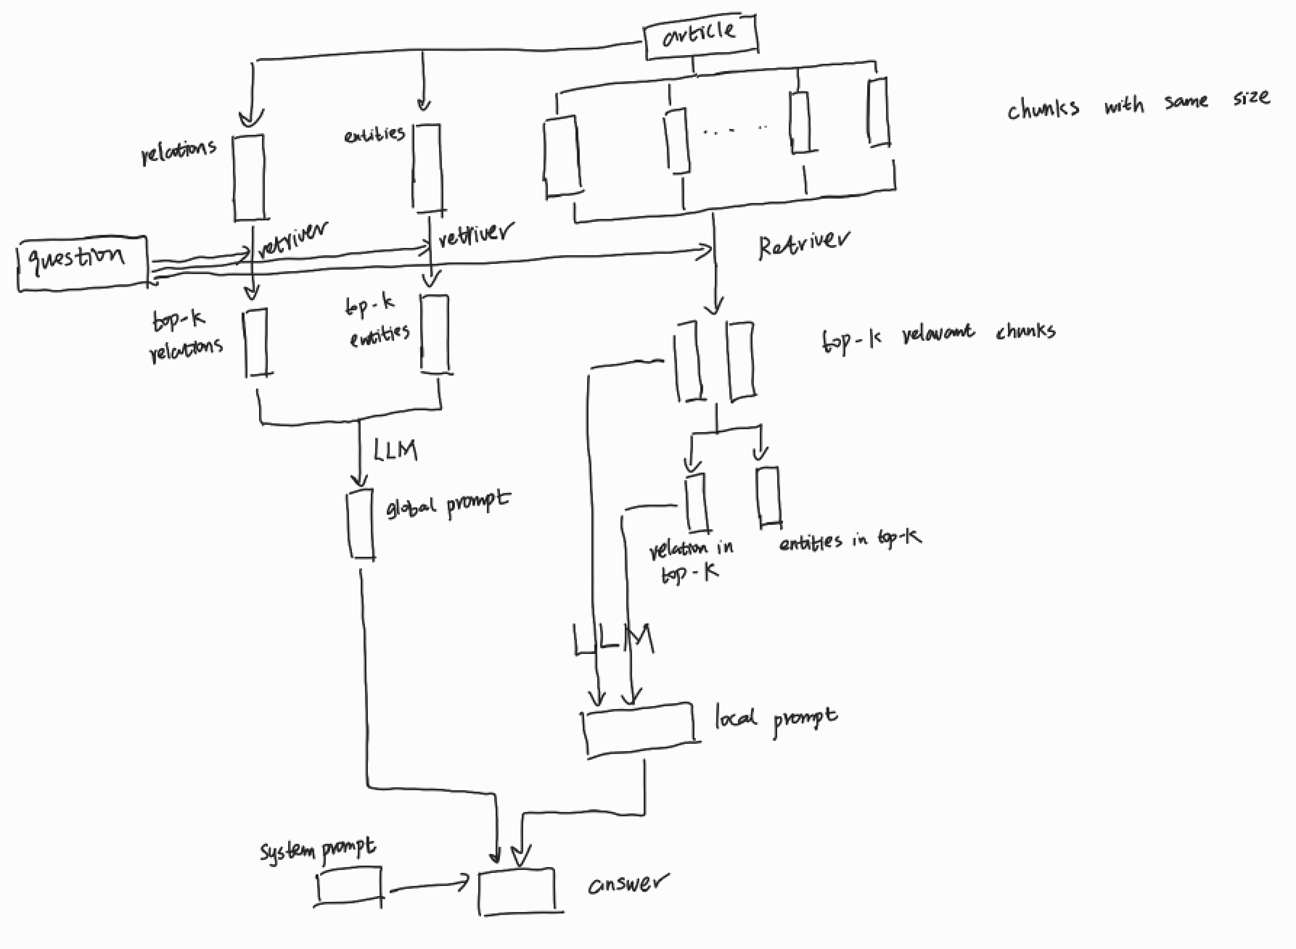 article
chunks with same size
relations
entities
question
retriver
retriver
Retriver
top-k
relations
top-k
entities
top-k relavant chunks
LLM
global prompt
relation in
top-k
entities in top-k
LLM
local prompt
system prompt
answer